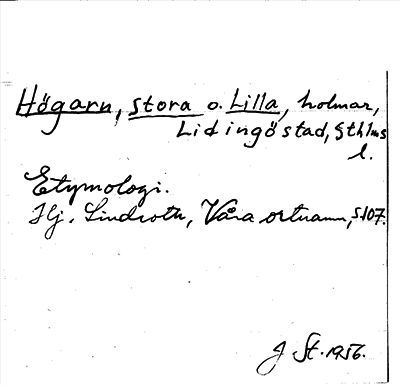 Högarn, stora o. Lilla, holmar,
Lidingö stad, Sthlms
l.
Etymologi.
Hj. Lindroth, Våra ortnamn, s. 107.
J St. 1956.